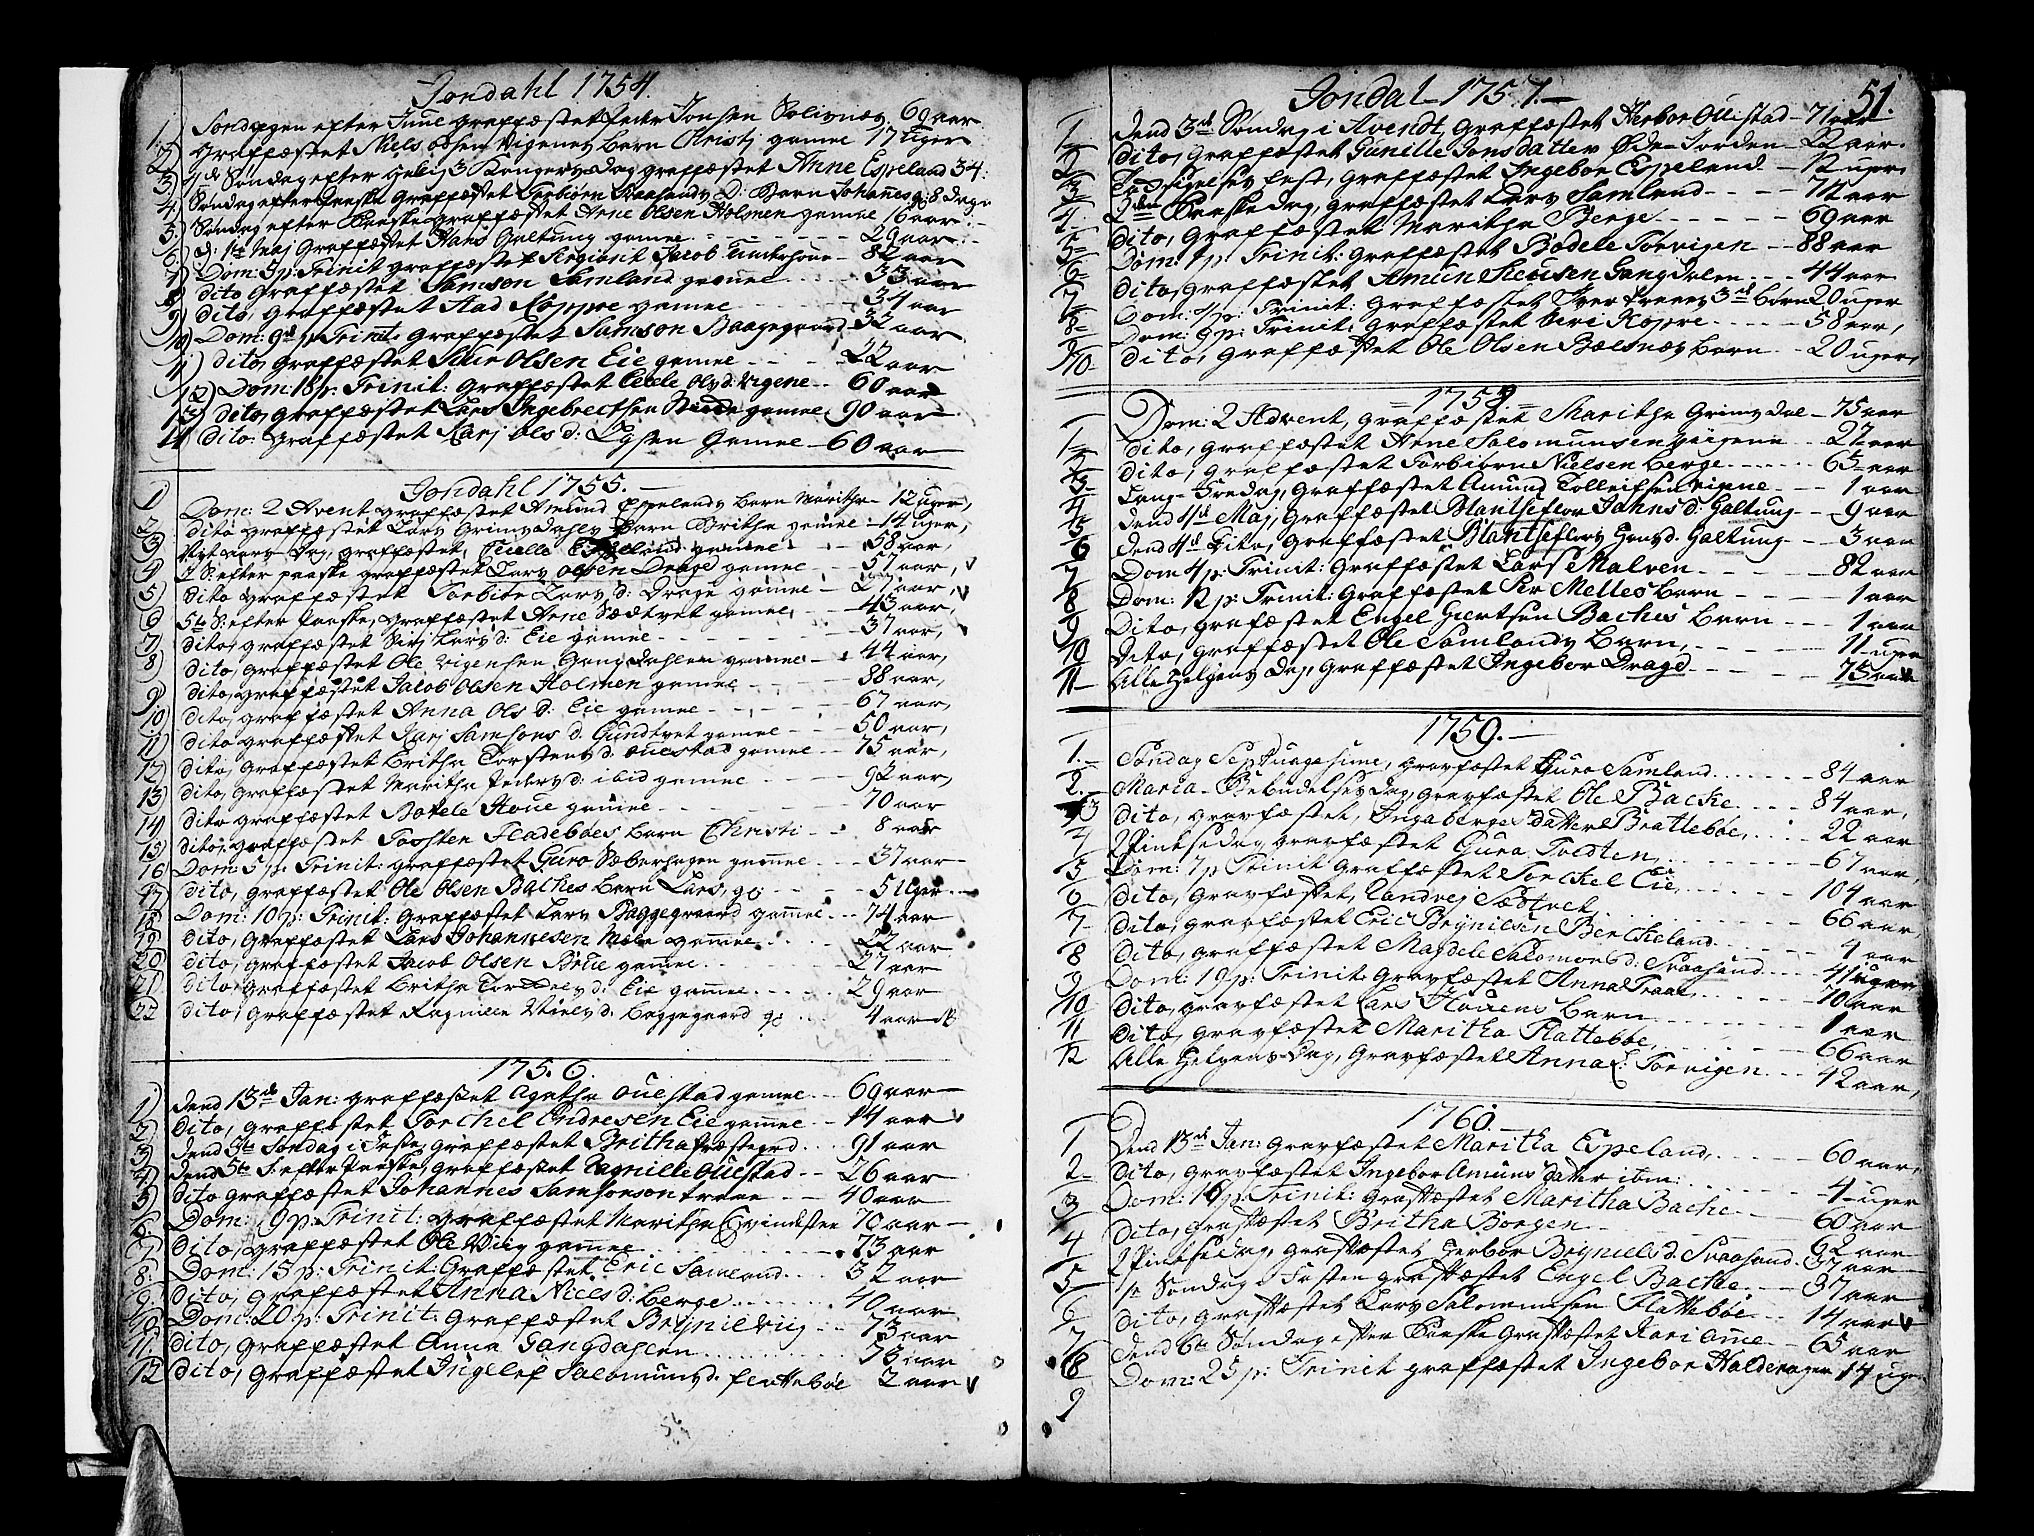 Jondahl 1754.
1. Søndagen efter Juul Graffæstet Peder Jonsen Solisnæs 69 aar
2) Graffæstet Niels Olsen Vigenes Barn Christj gamel 17 uger
3) Søndag efter Hellig 3 Kongers Dag graffæstet Anne Espeland 34:
4) Søndag efter Paaske Graffæstet Torbiørn Svaasands D: Barn Johannes g: 8 Dage
5) Søndag efter Paaske graffæstet Arne Olsen Holmen gamel 16 aar
6) D: 1te Maj Graffæstet Hans Galtung gamel 29 aar
7) Dom: 3 p: Trinit graffæstet Sergiant Jacob 82 aar
8) Dito Graffæstet Samson Samland gamel 33 aar
9) Dito, Graffæstet Aad Koppre gamel 34 aar
10) Dom: 9 p: Trinit: Graffæstet Samson Baagegaard 32 aar
11) Dito, Graffæstet Siur Olsen Eie gamel 22 aar
12) Dom: 18 p: Trinit: Graffæstet Ols d: Vigene 60 aar
13) Dito, Graffæstet Lars Ingebrectsen gamel 90 aar
14 Dito: Graffæstet Karj Ols d: Gamel 60 aar
Jondahl 1755.
1) Dom: 2 Avent graffæstet Amund Espelands barn Maritha 12 uger,
2) Dito graffæstet Lars Grimsdahls Barn Britha gamel 14 uger,
3) Nyt aars Dag, graffæstet, Espeland gamel 58 aar,
4) S: efter paaske graffæstet Lars Olsen Drage gamel 51 aar,
5) Dito graffæstet Torbiør Lars d: Drage gamel 27 aar,
6) 5te S: efter Paaske, graffæstet Arne Sædtvet gamel, 43 aar,
7) Dito, graffæstet Siri Lars d: Eie gamel 37 aar,
8) Dito, graffæstet Ole Vigensen Gangdahlen gamel 44 aar,
9) Dito, graffæstet Jacob Olsen Holmen gamel 38 aar,
10) Dito, graffæstet Anna Ols d: Eie gamel 67 aar,
11) Dito graffæstet Karj Samsons d. Gundtvet gamel 50 aar,
12) Dito, graffæstet Britha Torstens d: Ouestad gamel 75 aar,
13) Dito, graffæstet Maritha Peders d: ibid gamel 92 aar,
14) Dito graffæstet Botele Houe gamel 70 aar
15) Dito, graffæstet Tosten Fladebøes barn Christi 8 aar
16 Dom: 5 p: Trinit: graffæstet Guro Sæberhagen gamel 37 aar
17) Dito, graffæstet Ole Olsen Bakhes barn Lars, g: 5 Uger
18 Dom: 10 p: Trinit: Graffæstet Lars Baggegaard gamel 74 aar
19 Dito, graffæstet Lars Johannesen Mæle gamel 22 aar
20 Dito, Graffæstet Jacob Olsen Brüe gamel 27 aar
21) Dito, Graffæstet Britha d: Eie gamel 29 aar
22 Dito, Graffæstet Ragnilde Niels d: Baggegaard g: 4 aar
1756.
1) Dend 13de Jan: graffæstet Agatha Ouestad gamel 69 aar
2) Dito, graffæstet Torchel Endresen Eie gamel 14 aar
3) Dend 3de Søndag i Faste, Graffæstet Britha Præstegrd 91 aar
4) Dend 5te S: efter Paaske, Graffæstet Ragnille Ouestad 26 aar
5) Dito graffæstet Johannes Samsonson Traae 40 aar
6. Dom: 9 p: Trinit: graffæstet Maritha Qvindsten 70 aar
7) Dito, graffæstet Ole Viig gamel 73 aar
8. Dom: 15 p: Trinit: Graffæstet Eric Samland 32 aar
9. Dito, graffæstet Anna Niels d: Berge 40 aar
10 Dom: 20 p: Trinit: Graffæstet Brynil viig 73 aar
11. Dito, Graffæstet Anna Gangdahlen 73 aar
12 Dito, Graffæstet Ingelef Salomuns d. flattebøe 2 aar
51.
Jondal 1757.
1 Dend 3de Søndag i Avendt, Graffæstet Herbor Ouestad 71 aar
2 Dito, Graffæstet Gunille Jonsdatter Øde-Jorden 22 aar.
3 fest, graffæstet Ingebor Espeland 12 uger
4 2den Paaske dag, graffæstet Lars Samland 74 aar
5 Dito, Graffæstet Maritha Berge 69 aar
6 Dom: 1 p: Trinit: Graffæstet Bodele Torvigen 88 aar
7 Dito, Graffæstet Amun Siensen Gangdalen 44 aar
8 Dom: 4 p: Trinit: Graffæstet Iver Traaes 3de Børn 20 uger
9 Dom: 9 p: Trinit: Graffæstet Siri Kopre 58 aar,
10 Dito, Graffæstet Ole Olsen Bælsnæs barn 20 uger,
1758
1 Dom: 2 Advent, Graffæstet Maritha Grimsdal 75 aar
2 Dito, Graffæstet Arne Salomunsen Vigene 22 aar
3 Dito, Graffæstet Torbiørn Nielsen Berge 65 aar
4 Lang-Fredag, Graffæstet Amund Tolleifsen vigene 1 aar
5 Dend 4de Maj, Graffæstet Blantseflor Jahns d: Galtung 9 aar
6 Dend 4de Dito, Graffæstet Blantseflors Hans d. Galtung 3 aar
7 Dom 4 p: Trinit: Graffæstet Lars Malven 82 aar
8 Dom: 12 p: Trinit: Graffæstet Per Melles Barn 1 aar
9 Dito, Graffæstet Engel Giertsen Baches Barn 1 aar
10 Dito, Graffæstet Ole Samlands Barn, 11 uger
11 Alle Helgens Dag, Graffæstet Ingebor Drage 75 aar
1759.
1. Søndag Septuagesime, Gravfæstet Guro Samland 84 aar
2. Maria Bebudelses Dag gravfæstet Ole Backe 84 aar,
3 Dito, gravfæstet, Ingaberge datter Brattebøe, 22 aar
4 Pintsedag, gravfæstet Gura Tvedten, 67 aar,
5 Dom: 7 p: Trinit Graffæstet Torchel Eie, 104 aar
6 Dito, Gravfæstet, Randvej Sædtvet 66 aar,
7 Dito, gravfæstet Eric Brynilsen Bercheland 4 aar
8 Dito, Graffæstet Magdele Salomons d: Svaasand 41 uger
9 Dom: 19 p: Trinit: Gravfæstet Anna Traae 70 aar
10 Dito, gravfæstet Lars Houens Barn 1 aar
11 Dito, Gravfæstet Maritha Flattebøe, 66 aar
12 Alle Helgens-Dag, Gravfæstet Anna L: Torvigen 42 aar,
1760.
1 Dend 13de Jan: Gravfæstet Maritha Espeland, 60 aar,
2 Dito, Gravfæstet Ingebor Amuns datter ibm: 4 uger
3 Dom: 16 p: Trinit: Graffæstet Maritha Bache 60 aar
4 Dito, Graffæstet Britha Borgen 92 aar
5 2 Pintsedag, Graffæstet Herbor Bryniels d: Svaasand 32 aar
6 1te Søndag i Fasten graffæstet Engel Backe 37 aar
7 Dito, Graffæstet Lars Salomunsen Flattebøe 14 aar
8 Dend 6te Søndag efter Paaske Graffæstet Kari Ame 65 aar
9 Dom: 23 p: Trinit graffæstet Ingebor Haldenagen 14 uger